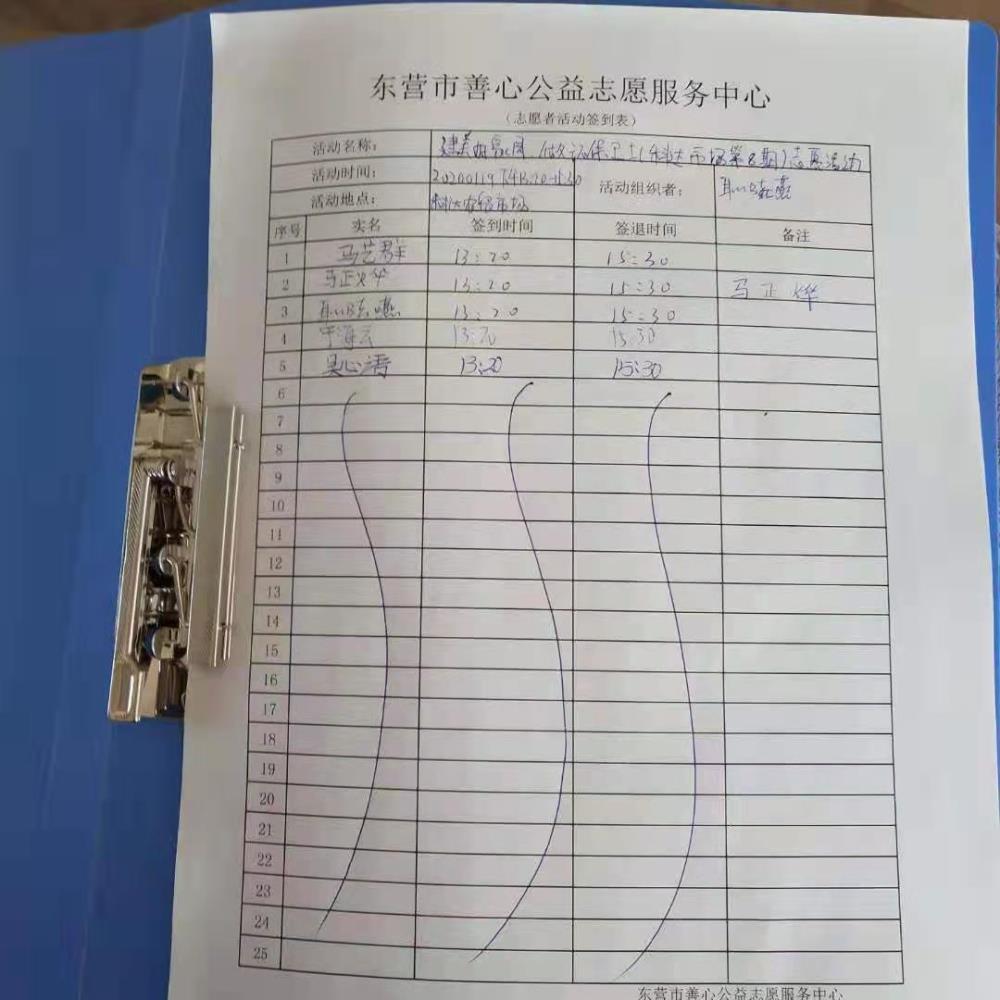 东营市善心公益志愿服务中心
（志愿者活动签到表）
活动名称： 建美丽家园 做环保卫士(科达市场第8期)志愿活动
活动时间： 20200119下午13:20-15:30 活动组织者：
活动地点：
序号 实名 签到时间 签退时间 备注
1 马艺群 13:20 15:30
2 马正火华 13:20 15:30 马正烨
3 13:20 15:30
4 于海云 13:20 15:30
5 吴心清 13:20 15:30
6
7
8
9
10
11
12
13
14
15
16
17
18
19
20
21
22
23
24
25
东营市善心公益志愿服务中心